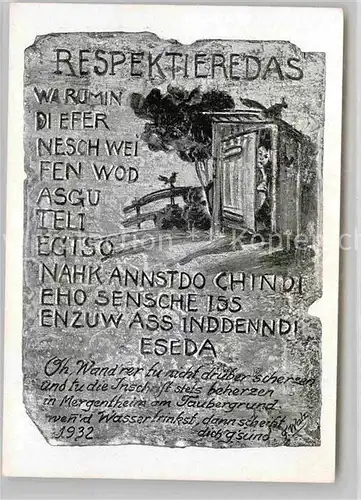 RESPEKTIEREDAS
WARUMIN
DI EFER
NESCH WEI
FEN WOD
ASGU
TELI
EGTSO
NAHK ANNSTDO CHINDI
EHO SENSCHE ISS
ENZUW ASS INDDENNDI
ESEDA
Oh, Wand'rer tu nicht drüber scherzen
und tu die Inschrift stets beherzen
in Mergentheim am Taubergrund
wen'd Wasser trinkst, dann scheißt
1932 dich g'sund.